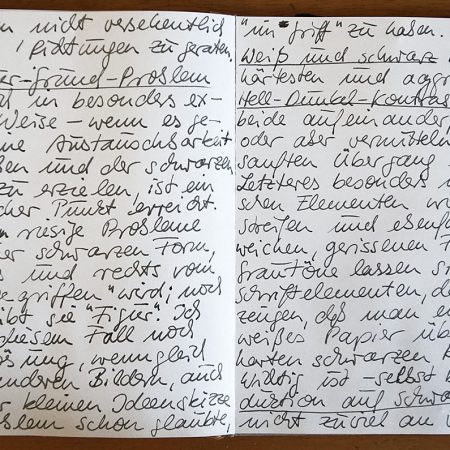 en nicht versehentlich
Richtungen zu geraten.
er-Grund-Problem
in besonders ex-
Weise – wenn es ge-
ne Austauschbarkeit
en und der schwarzen
zu erzielen, ist ein
cher Punkt erreicht.
riesige Probleme
er schwarzen Form,
s und rechts vom
griffen" wird; noch
ibt sie "Figur". Ich
diesem Fall noch
ösung, wenngleich
anderen Bildern, auch
r kleinen Ideenskizze
blem schon glaubte,
"im Griff" zu haben.
Weiß und schwarz
härtesten und aggr
Hell-Dunkel-Kontras
beide aufeinander,
oder aber vermitteln
sanften Übergang
Letzteres besonders
schen Elementen wi
streifen und ebenf
weichen, gerissenen F
Grautöne lassen s
Schriftelementen, d
zeugen, daß man e
weißes Papier üb
harten schwarzen
Wichtig ist – selbst b
duktion auf schwa
nicht zuviel an